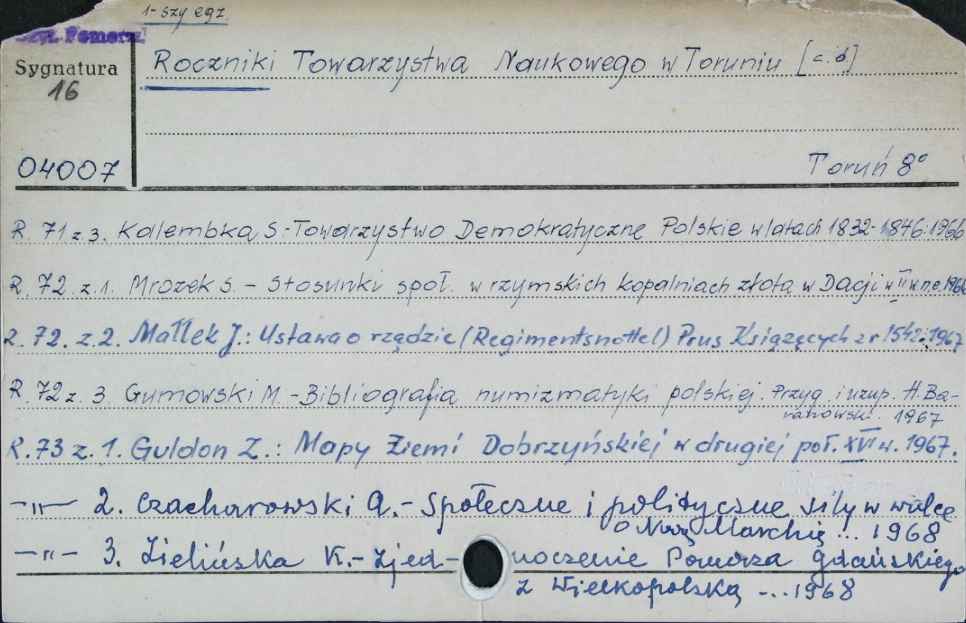 1-szy egz.
Pomorz.
Sygnatura
16
Roczniki Towarzystwa Naukowego w Toruniu [c.d]
04007
Toruń 8°
R. 71 z 3. Kalembka S.-Towarzystwo Demokratyczne Polskie w latach 1832-1846. 1966
R. 72 z.1. Mrozek S. - Stosunki społ. w rzymskich kopalniach złota w Dacji w II w n.e. 1966
R. 72. z.2. Małłek J.: Ustawa o rządzie (Regimentsnottel) Prus Książęcych z r 1542. 1967
R. 72 z. 3 Gumowski M.-Bibliografia numizmatyki polskiej. Przyg. i uzup. H. Ba-
ranowski. 1967
R. 73 z. 1. Guldon Z.: Mapy Ziemi Dobrzyńskiej w drugiej poł. XVI w. 1967.
-"- 2. Czacharowski A.-Społeczne i polityczne siły w walce
o Nową Marchię ... 1968
-"- 3. Zielińska K.-Zjed- noczenie Pomorza Gdańskiego
z Wielkopolską ... 1968